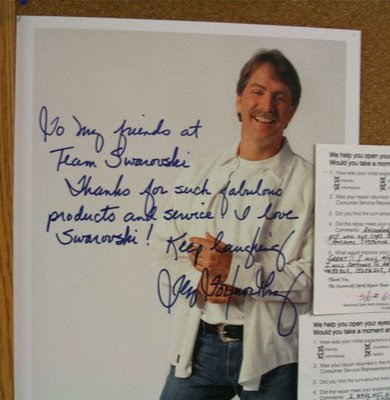 To my friends at
Team Swarovski
Thanks for such fabulous
products and service! I love
Swarovski! Keep laughing
Jeff Foxworthy
We help you open your
Would you take a mome
1. How was your initial experience
friendly
informative
2. Was your repair returned in the
Consumer Service Representa
3. Did you find the turn-around time
4. Did the repair meet your
Comments
AWESOME CUSTOMER
5. What would improve your
GREAT!! I WILL
I WILL CONTINUE TO
Thank You,
The Swarovski Optik Repair Team
We help you open your eyes
Would you take a moment a
1. How was your initial experience
friendly
informative
2. Was your repair returned in the
Consumer Service Representat
3. Did you find the turn-around time
4. Did the repair meet your
Comments